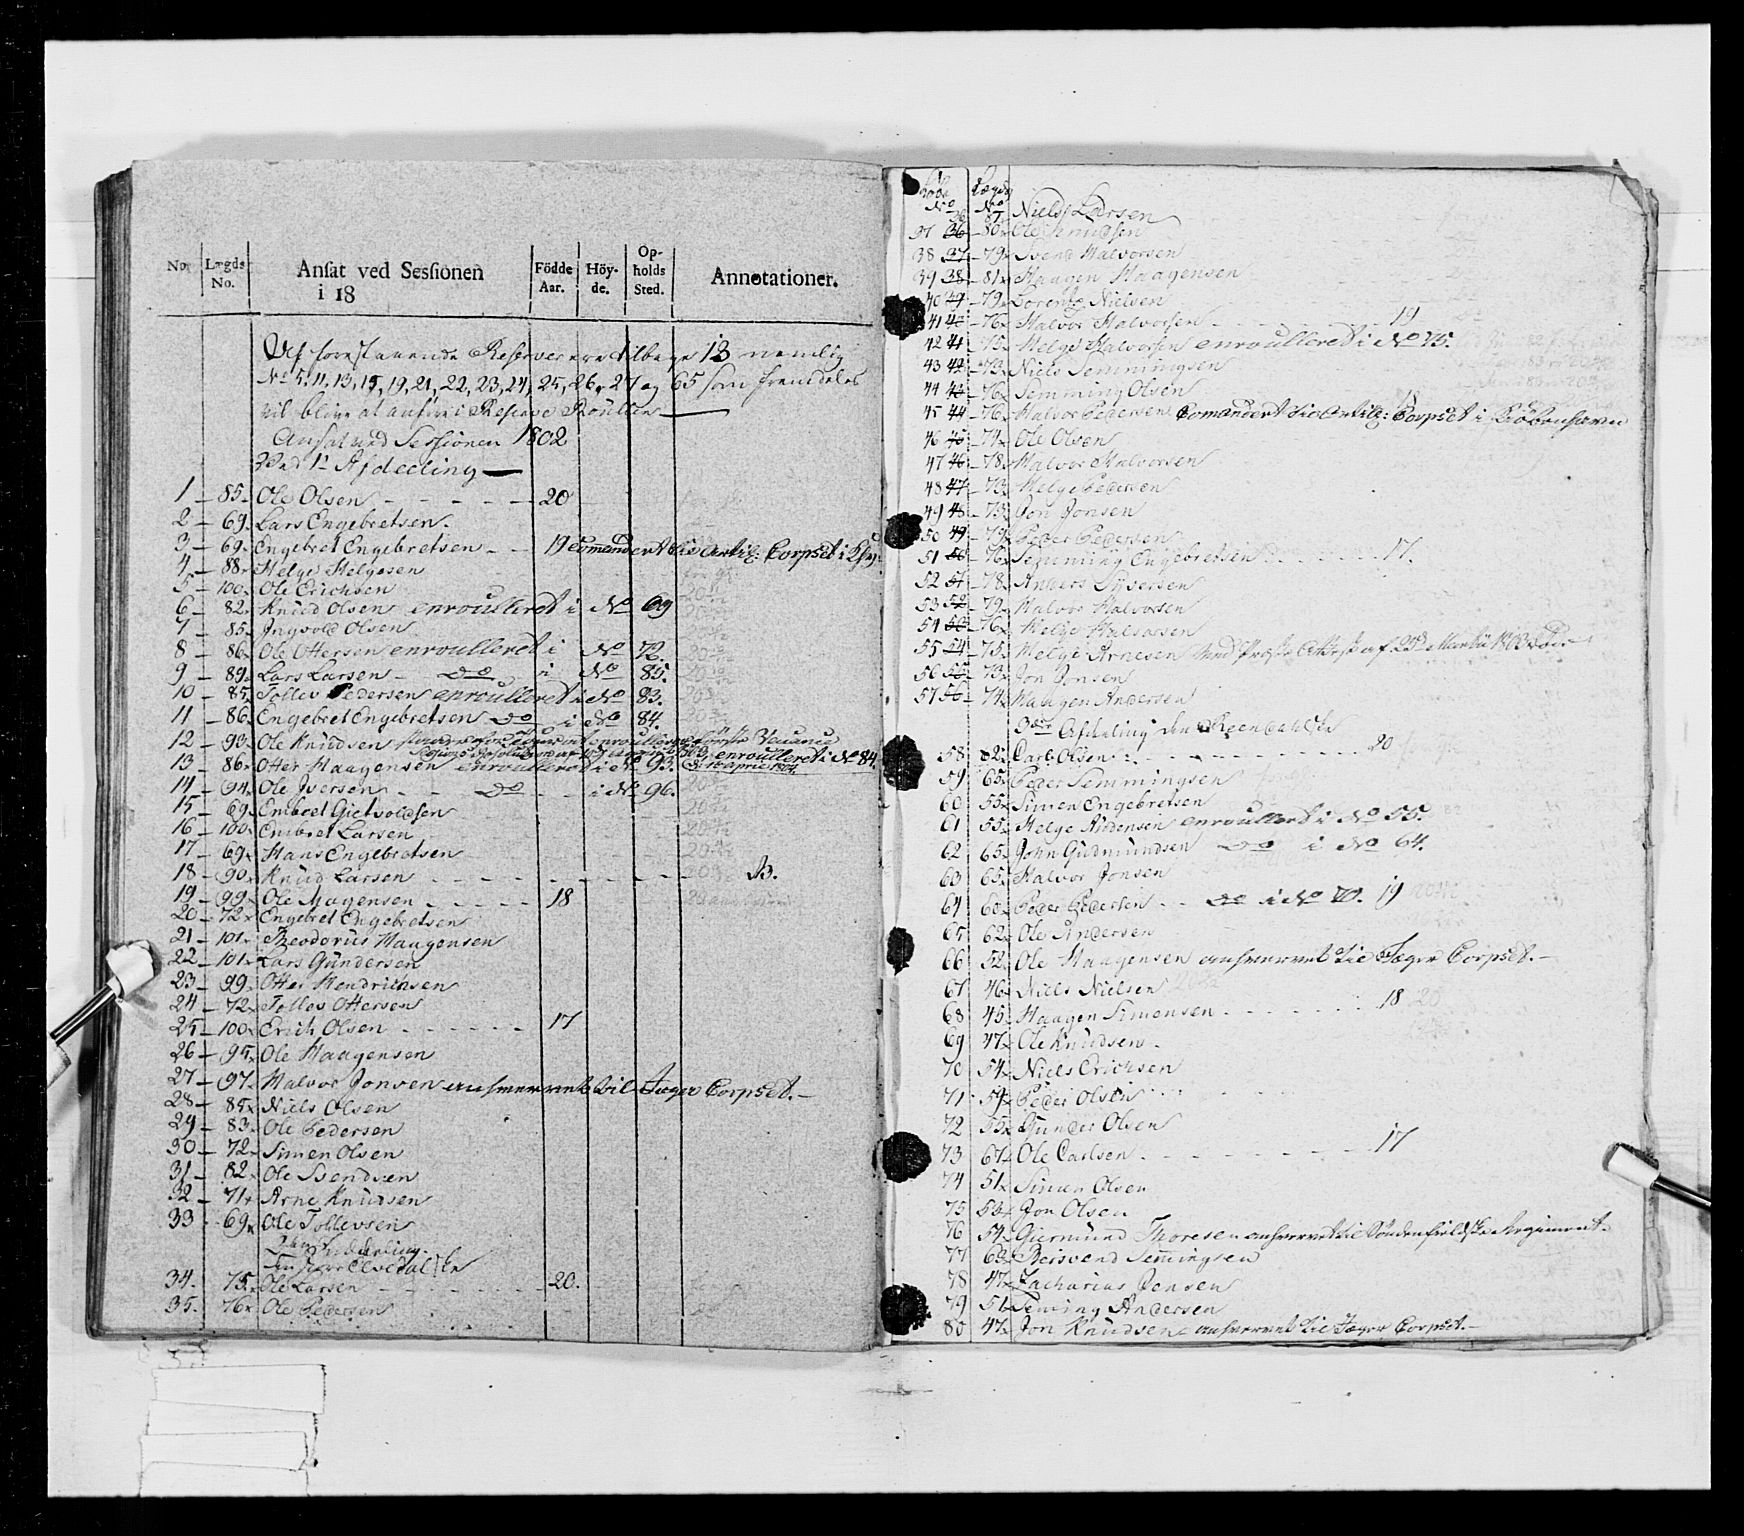 No. Lægds No. Ansat ved Sessionen i 18 Födde Aar. Höyde. Opholds Sted. Annotationer.
Af forestaaende Reserver ere tilbage 13 nemlig
No 5, 11, 13, 15, 19, 21, 22, 23, 24, 25, 26, 27 og 65 som fremdeles
vil blive at anføre i Reserve Roullen
Ansat ved Sessionen 1802
Ved 1te Afdeeling
1 - 85. Ole Olsen - - - - 20
2 - 69. Lars Engebretsen.
3 - 69. Engebret Engebretsen - - 19 Comandert til Artil: Corpset i Khvn
4 - 88. Helge Helgesen
5 - 100. Ole Erichsen
6 - 82. Knud Olsen enroulleret i No 69
7 - 85. Ingvold Olsen
8 - 86. Ole Ottersen enroulleret i No 72.
9 - 89. Lars Larsen - do i No 85.
10 - 85. Tollev Pedersen enroulleret i No 83.
11 - 86. Engebret Engebretsen do i No 84.
12 - 93. Ole Knudsen første Vacance
enroulleret i No 84. d: 16 April 1804.
13 - 86. Otter Haagensen enroulleret i No 93.
14 - 94. Ole Iversen - - do - - i No 96.
15 - 69. Embret Gietvoldsen
16 - 100. Embret Larsen
17 - 69. Hans Engebretsen
18 - 90. Knud Larsen - - - - -
19 - 99. Ole Magensen - - - - 18
20 - 72. Engebret Engebretsen
21 - 101. Theodorus Haagensen
22 - 101. Lars Gundersen
23 - 99. Otter Hendrichsen
24 - 72. Tollev Ottersen
25 - 100. Erich Olsen - - - - - 17
26 - 95. Ole Haagensen
27 - 97. Halvor Jonsen anhvervet til Jæger Corpset. -
28 - 85. Niels Olsen
29 - 83. Ole Pedersen
30 - 72. Simen Olsen
31 - 82. Ole Svendsen
32 - 71. Arne Knudsen
33 - 69. Ole Tollevsen
34. 75. Ole Larsen - - - - - 20.
35. 76. Ole Pedersen
No Lægds No
36 87 Niels Larsen
37 36 - 80. Ole Knudsen
38 37 - 79. Svend Halvorsen
39 38 - 81. Haagen Haagensen
40 39 - 79. Lorentz Nielsen
41 40 - 76. Halvor Halvorsen - - - - 19
42 41 - 75. Helge Halvorsen enroulleret i No 75.
43 42 - 73. Niels Semmingsen
44 43 - 76. Semming Olsen
45 44 - 76. Halvor Pedersen Comandert til Artil: Corpset i Kiöbenhavn
46 45 - 74. Ole Olsen
47 46 - 78. Halvor Halvorsen
48 47 - 73. Helge Pedersen
49 48 - 73. Jon Jonsen
50 49 - 79. Peder Pedersen
51 50 - 76. Semming Engebretsen - - - - 17.
52 51 - 78. Anders Syversen
53 52 - 79. Halvor Halvorsen
54 53 - 76. Helge Halvorsen
55 54 - 75. Helge Arnesen
56 55 - 73. Jon Jonsen
57 56 - 74. Haagen Andersen
3die Afdeling den Reendahlske
58 62. Carl Olsen - - - - - 20
59 65. Peder Semmingsen
60 55. Simen Engebretsen
61 55. Helge Amdensen enroulleret i No 55.
62 65. John Gudmundsen do i No 64.
63 65. Halvor Jonsen
64 60. Peder Pedersen - - do i No 70. 19
65 62. Ole Andersen
66 52. Ole Haagensen anhvervet til Jæger Corpset. -
67 46. Niels Nielsen
68 45. Haagen Simensen - - - - - 18
69 47. Ole Knudsen.
70 54. Niels Erichsen
71 59. Peder Olsen
72 55. Gunder Olsen
73 67. Ole Carlsen - - - - - 17
74 51. Simen Olsen
75 53. Jon Olsen
76 54. Giermund Thoresen anhvervet til Söndenfieldske Regiment.
77 63. Reisvend Semingsen
78 47. Zacharias Jensen
79 51. Seming Andersen
80 47. Jon Knudsen - anhvervet til Jæger Corpset. -